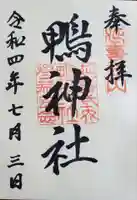 奉拝
鴨神社
令和四年七月三日